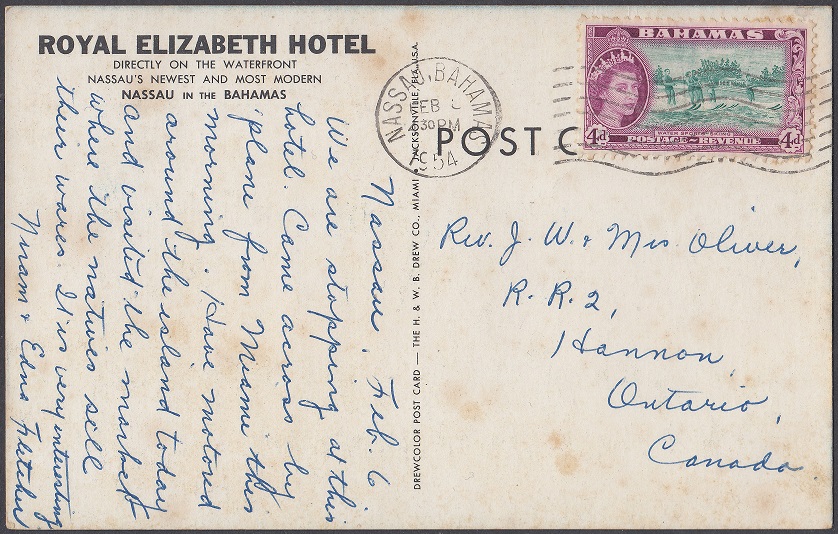 ROYAL ELIZABETH HOTEL
DIRECTLY ON THE WATERFRONT
NASSAU'S NEWEST AND MOST MODERN
NASSAU IN THE BAHAMAS
Nassau, Feb. 6
We are stopping at this
hotel. Came across by
plane from Miami this
morning. Have motored
around the island today
and visited the market
where the natives sell
their wares. It is very interesting
& Edna Fletcher
DREWCOLOR POST CARD — THE H. & W. B. DREW CO., MIAMI • JACKSONVILLE, FLA., U.S.A.
POST C
NASSAU, BAHAMAS
FEB
30 PM
1954
BAHAMAS
4d 4d
POSTAGE~REVENUE
Rev. J. W. & Mrs Oliver,
R. R. 2,
Hannon,
Ontario,
Canada